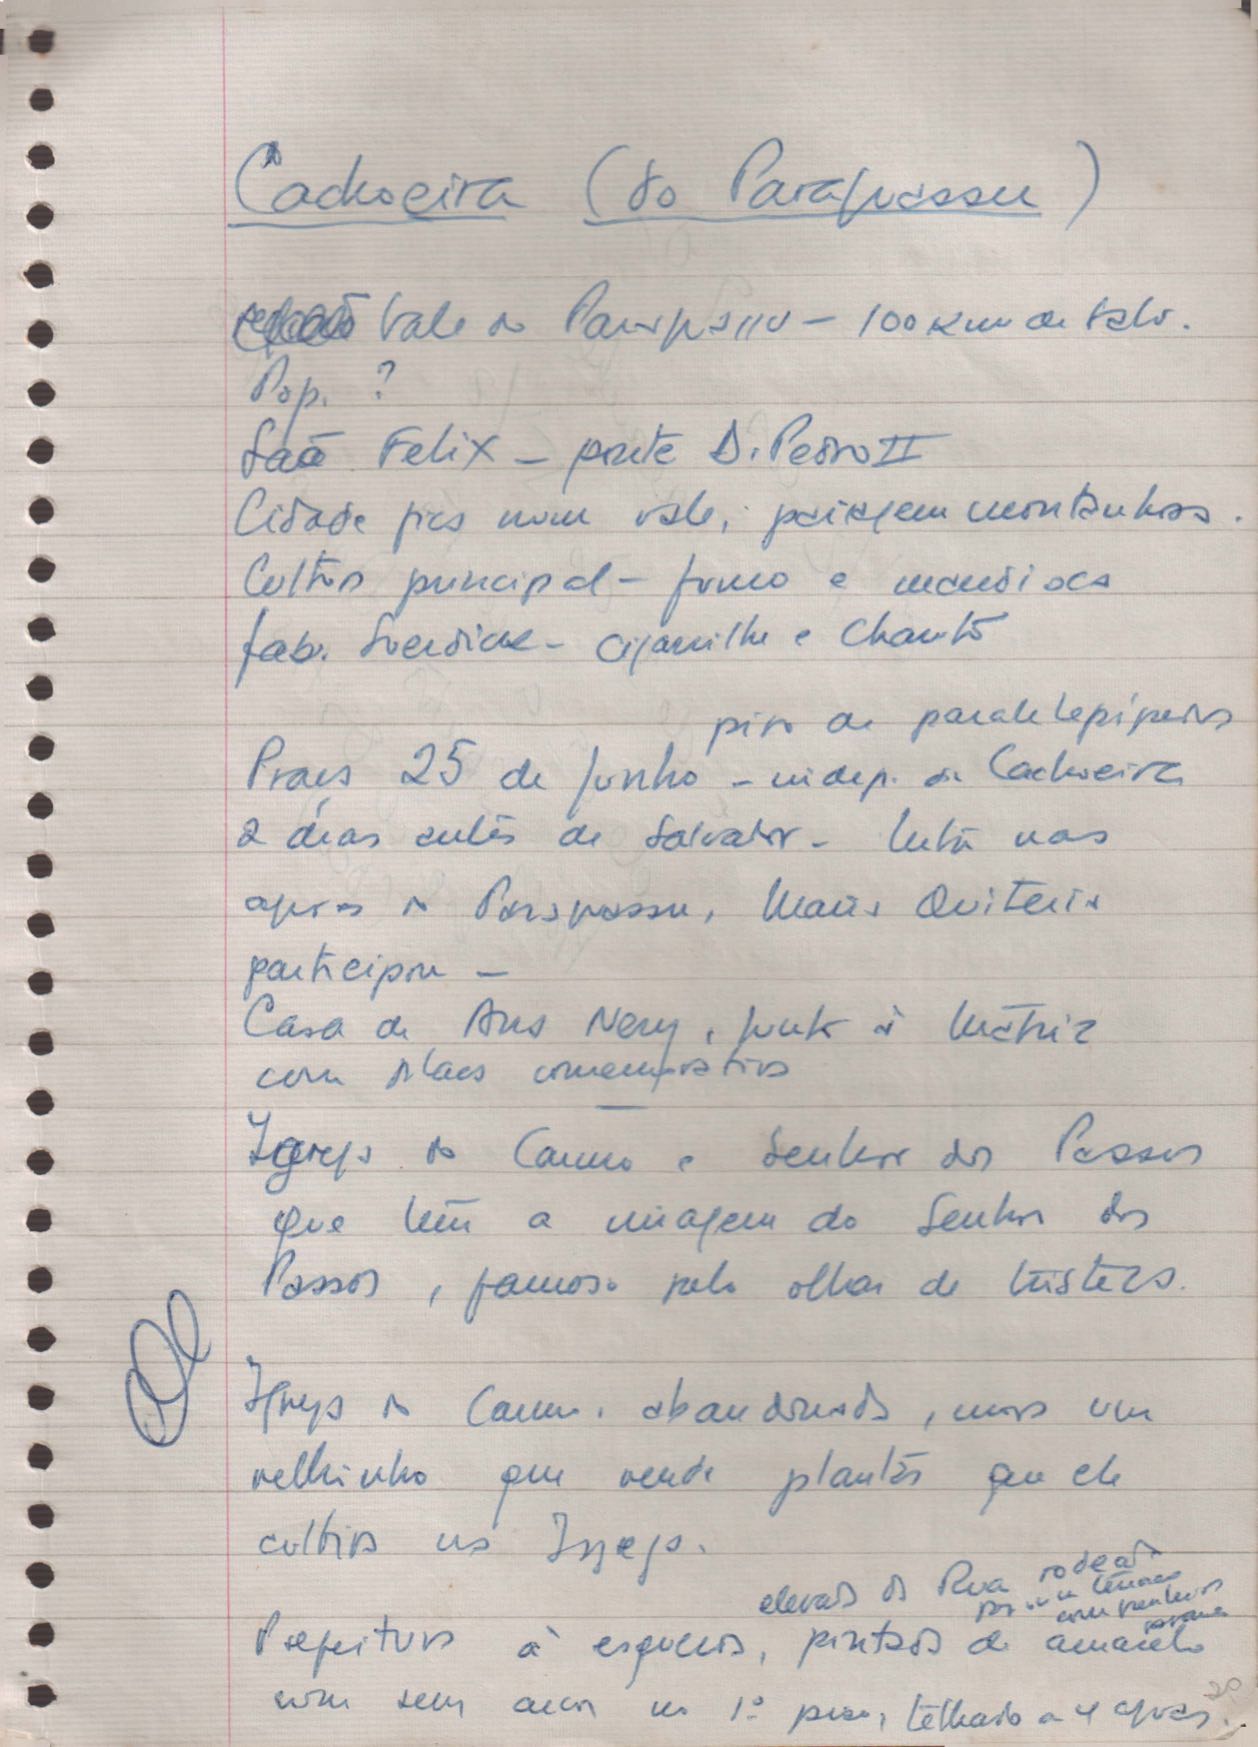 Cachoeira (do Paraguassu)
Vale do Paraguassu - 100 km de Salv.
Pop. ?
São Felix - ponte D. Pedro II
Cidade fica num vale, paisagem montanhosa.
Cultura principal - fumo e mandioca
fab. Suerdick - cigarrilha e charuto
piso de paralelepípedos
Praça 25 de Junho - indep. de Cachoeira
2 dias antes de Salvador - luta nas
águas do Paraguassu, Maria Quiteria
participou -
Casa de Ana Nery, junto à Matriz
com placa comemorativa
Igreja do Carmo e Senhor dos Passos
que tem a imagem do Senhor dos
Passos, famoso pelo olhar de tristeza.
Igreja do Carmo, abandonada, mas um
velhinho que vende plantas que ele
cultiva na Igreja.
elevada da Rua rodeada
por um terraço
com
Prefeitura à esquerda, pintada de amarelo
com sem arcos no 1º piso, telhado a 4 águas.
20